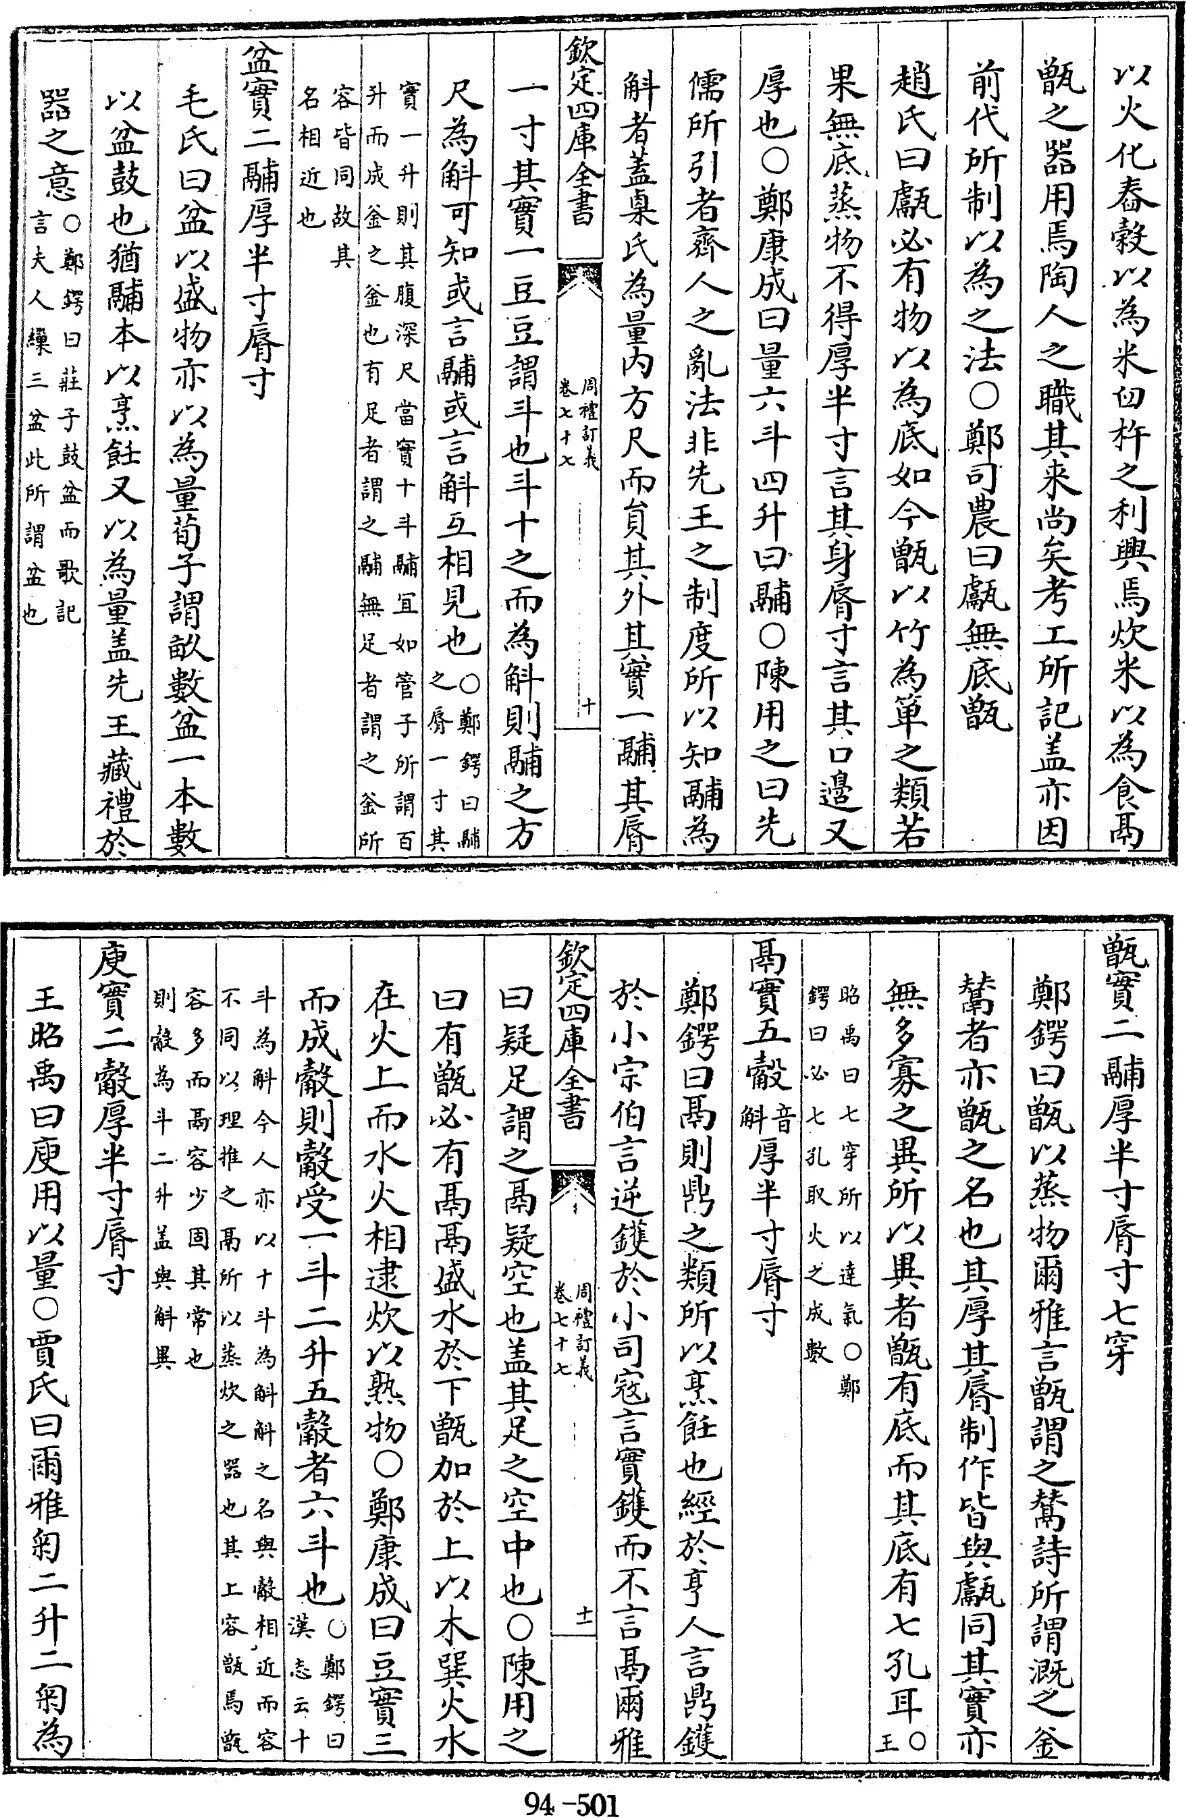 以火化舂榖以為米臼杵之利興焉炊米以為食鬲
甑之器用焉陶人之職其来尚矣考工所記盖亦因
前代所制以為之法○鄭司農曰甗無底甑
趙氏曰甗必有物以為底如今甑以竹為箄之類若
果無底蒸物不得厚半寸言其身脣寸言其口邉又
厚也○鄭康成曰量六斗四升曰鬴○陳用之曰先
儒所引者齊人之亂法非先王之制度所以知鬴為
斛者蓋㮚氏為量内方尺而貟其外其實一鬴其脣
欽定四庫全書
周禮訂義
卷七十七
十
一寸其實一豆豆謂斗也斗十之而為斛則鬴之方
尺為斛可知或言鬴或言斛互相見也○鄭鍔曰鬴
之脣一寸其
實一升則其腹深尺當實十斗鬴宜如管子所謂百
升而成釜之釜也有足者謂之鬴無足者謂之釜所
容皆同故其
名相近也
盆實二鬴厚半寸脣寸
毛氏曰盆以盛物亦以為量荀子謂畝數盆一本數
以盆鼓也猶鬴本以烹飪又以為量盖先王藏禮於
器之意○鄭鍔曰莊子鼓盆而歌記
言夫人繅三盆此所謂盆也
甑實二鬴厚半寸脣寸七穿
鄭鍔曰甑以蒸物爾雅言甑謂之鬵詩所謂溉之釜
鬵者亦甑之名也其厚其脣制作皆與甗同其實亦
無多寡之異所以異者甑有底而其底有七孔耳○
王
昭禹曰七穿所以達氣○鄭
鍔曰必七孔取火之成數
鬲實五觳音
斛厚半寸脣寸
鄭鍔曰鬲則鼎之類所以烹飪也經於亨人言鼎鑊
於小宗伯言逆鑊於小司寇言實鑊而不言鬲爾雅
欽定四庫全書
周禮訂義
卷七十七
十一
曰疑足謂之鬲疑空也盖其足之空中也○陳用之
曰有甑必有鬲鬲盛水於下甑加於上以木巽火水
在火上而水火相逮炊以熟物○鄭康成曰豆實三
而成觳則觳受一斗二升五觳者六斗也○鄭鍔曰
漢志云十
斗為斛今人亦以十斗為斛斛之名與觳相近而容
不同以理推之鬲所以蒸炊之器也其上容甑焉甑
容多而鬲容少固其常也
則觳為斗二升盖與斛異
庾實二觳厚半寸脣寸
王昭禹曰庾用以量○賈氏曰爾雅匊二升二匊為
94-501